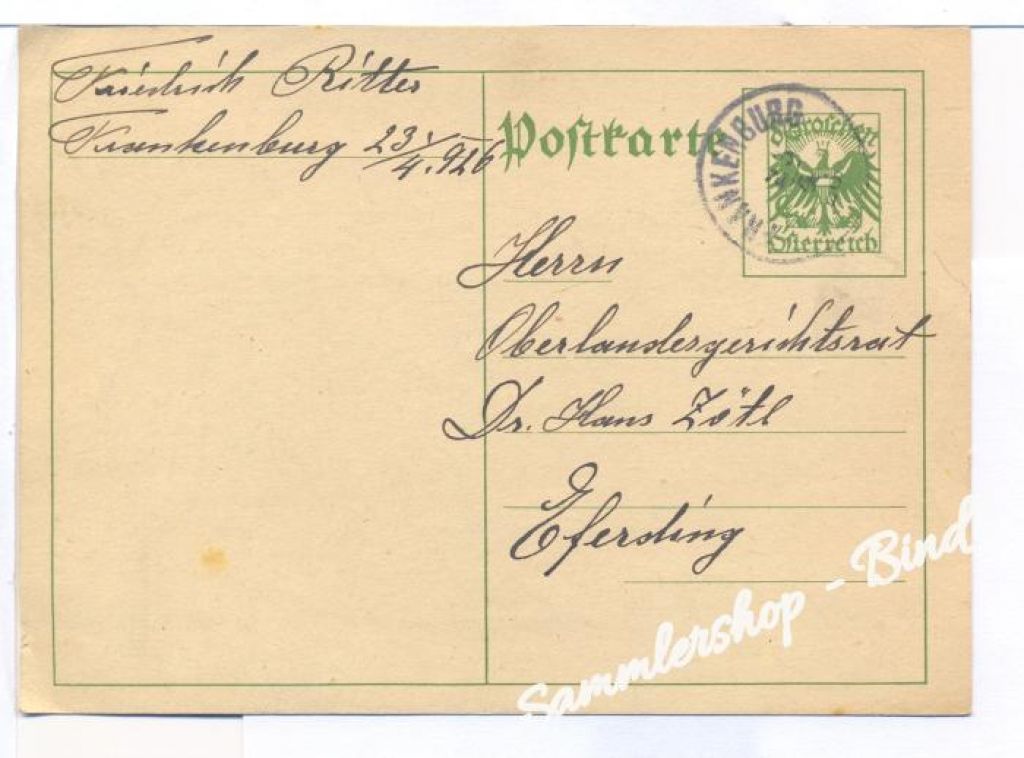 Friedrich Ritter
Frankenburg 23/4.926
Postkarte
FRANKENBURG
Groschen
Österreich
Herrn
Oberlandesgerichtsrat
Dr. Hans Zötl
Eferding
Sammlershop - Bind